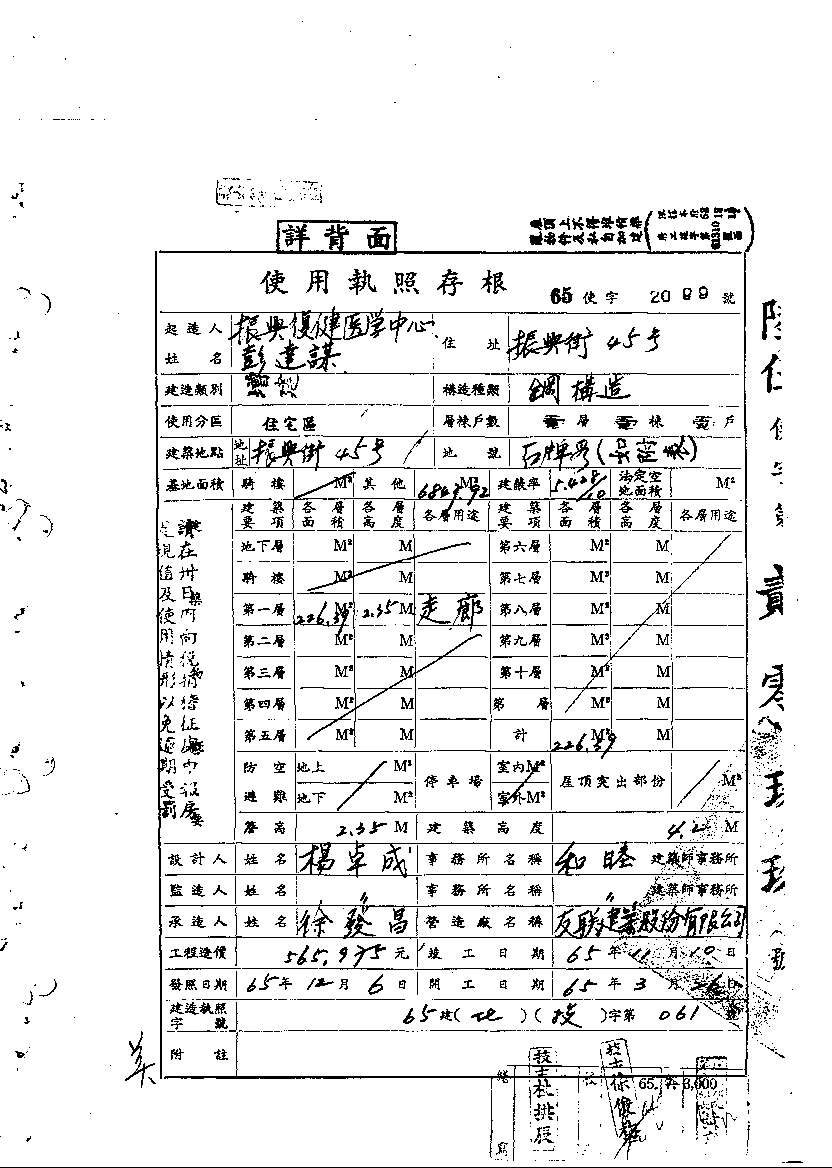 詳背面
使用執照存根
65 使字 2099 號
起造人姓名 振興復健医学中心 彭達謀 住址 振興街45号
建造類別 構造種類 鋼構造
使用分區 住宅區 層棟戶數 層 棟 戶
建築地點 地址 振興街45号 地號
基地面積 騎樓 M² 其他 6849.92 M² 建蔽率 法定空地面積 M²
建築要項 各層面積 各層高度 各層用途 建築要項 各層面積 各層高度 各層用途
地下層 M² M 第六層 M² M
騎樓 M² M 第七層 M² M
第一層 226.39 M² 2.35 M 走廊 第八層 M² M
第二層 M² M 第九層 M² M
第三層 M² M 第十層 M² M
第四層 M² M 第 層 M² M
第五層 M² M 計 226.39 M² M
防空避難 地上 M² 地下 M² 停車場 室內 M² 室外 M² 屋頂突出部份 M²
簷高 2.35 M 建築高度 4.2 M
設計人 姓名 楊卓成 事務所名稱 和睦 建築師事務所
監造人 姓名 〃 事務所名稱 〃 建築師事務所
承造人 姓名 徐發昌 營造廠名稱 友聯建業股份有限公司
工程造價 565,975 元 竣工日期 65年11月10日
發照日期 65年12月6日 開工日期 65年3月26日
建造執照字號 65建( )(投)字第061號
附註
美
65. 3,000